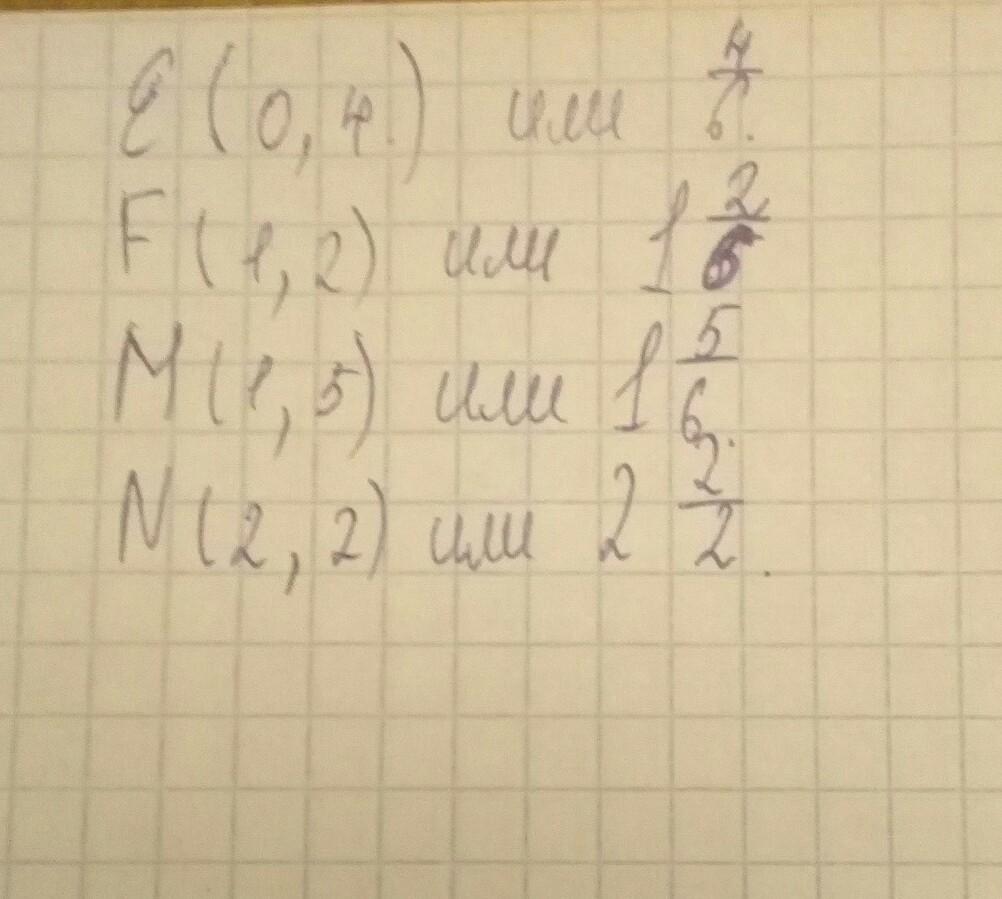 E (0,4.) или 4/6.
F (1,2) или 1 2/6
M (1,5) или 1 5/6
N (2,2) или 2 2/2.